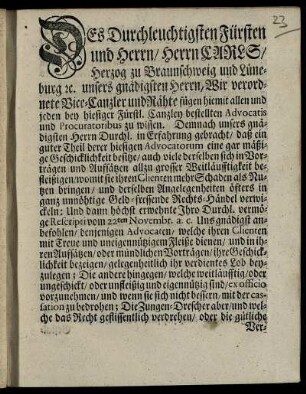 23.
DEs Durchleuchtigsten Fürsten
und Herrn/ Herrn CARLS/
Herzog zu Braunschweig und Lüne-
burg ꝛc. unsers gnädigsten Herrn, Wir verord-
nete Vice-Canzler und Rähte fügen hiemit allen und
jeden bey hiesiger Fürstl. Canzley bestellten Advocatis
und Procuratoribus zu wissen. Demnach unsers gnä-
digsten Herrn Durchl. in Erfahrung gebracht/ daß ein
guter Theil derer hiesigen Advocatorum eine gar mäßi-
ge Geschicklichkeit besitze/ auch viele derselben sich in Vor-
trägen und Aufsätzen allzu grosser Weitläufftigkeit be-
fleissigen womit sie ihren Clienten mehr Schaden als Nu-
tzen bringen/ und derselben Angelegenheiten öffters in
ganz unnöthige Geld-fressende Rechts-Händel verwi-
ckeln; Und dann höchst ermehnte Ihro Durchl. vermö-
ge Rescripti vom 22ten Novembr. a. c. Uns gnädigst an-
befohlen/ denjenigen Advocaten/ welche ihren Clienten
mit Treue und uneigennützigem Fleiße dienen/ und in ih-
ren Aufsätzen/ oder mündlichen Vorträgen/ ihre Geschick-
lichkeit bezeigen/ gelegenheitlich ihr verdientes Lob bey-
zulegen; Die andere hingegen/ welche weitläufftig/ oder
ungeschickt/ oder unfleißig und eigennützig sind/ ex officio
vorzunehmen/ und wenn sie sich nicht bessern/ mit der cas-
sation zu bedrohen; Die Zungen-Drescher aber/ und wel-
che das Recht geflissentlich verdrehen/ oder die gütliche
Ver-